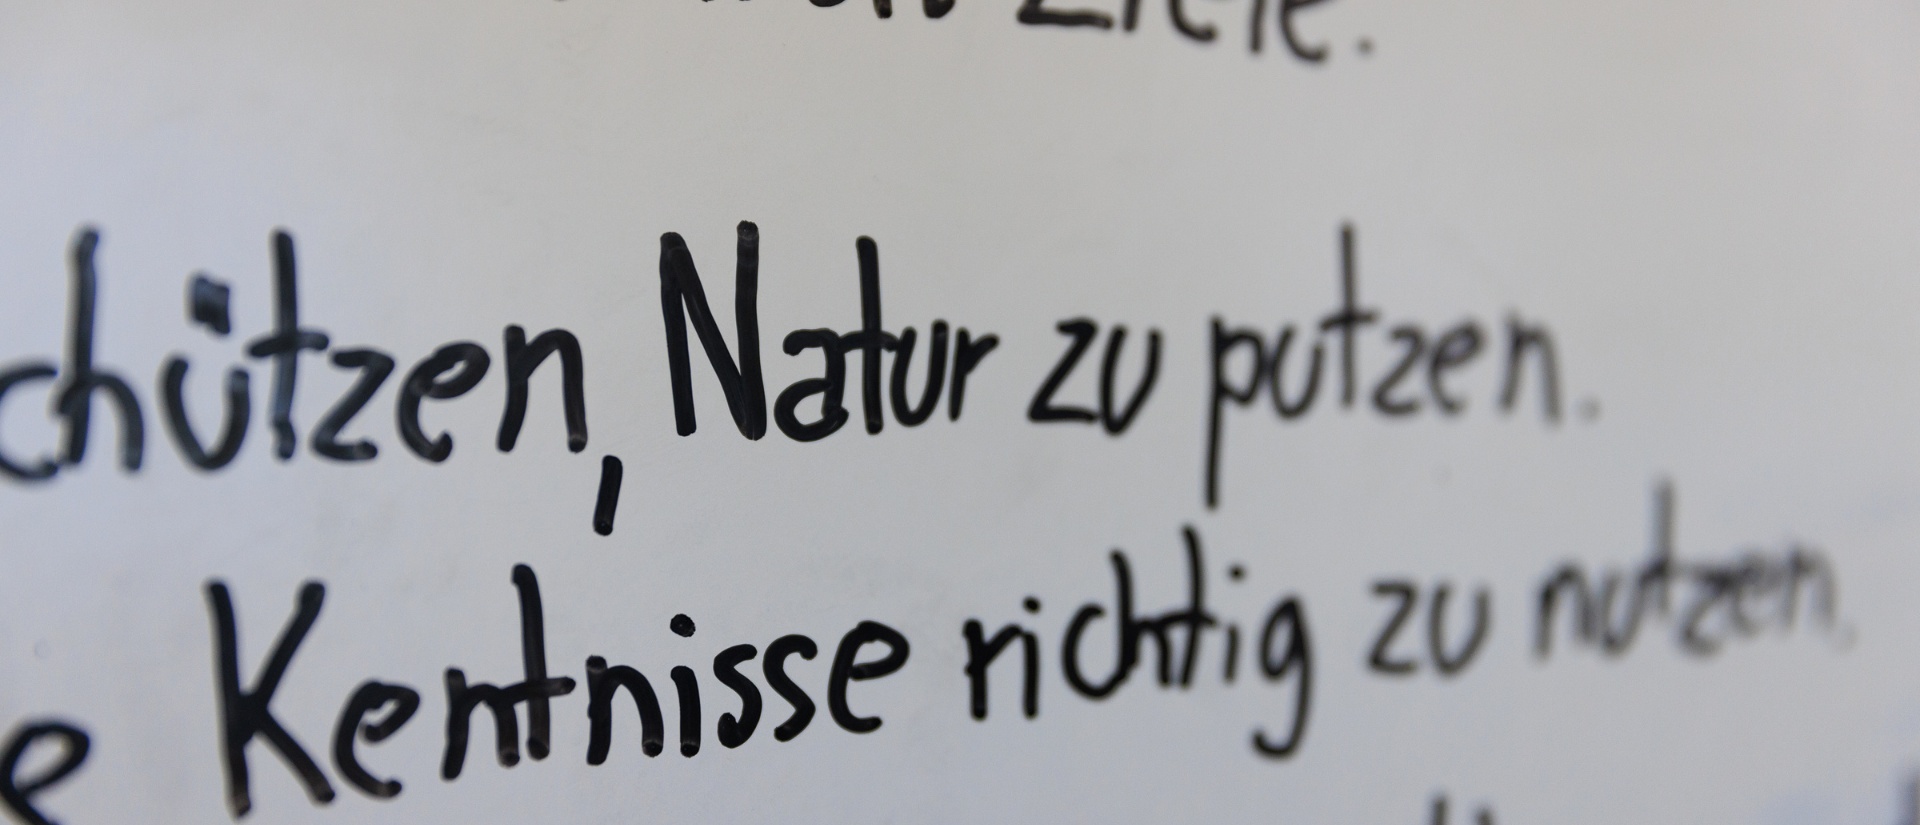 Ziele.
chützen, Natur zu putzen.
e Kentnisse richtig zu nutzen.